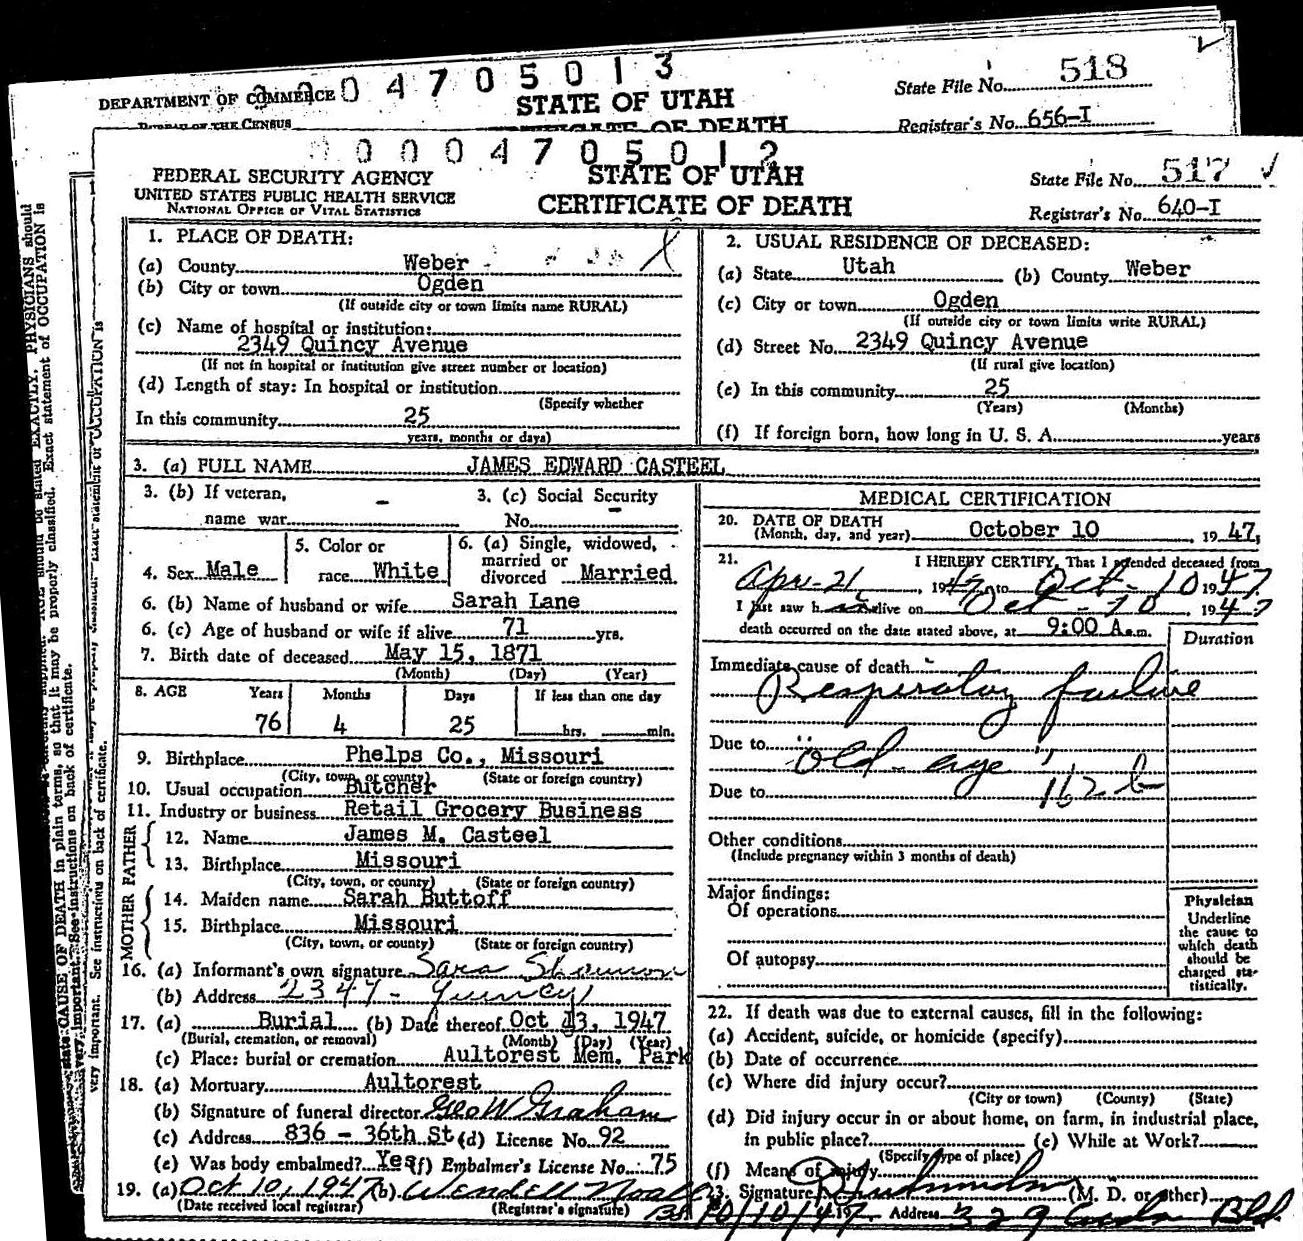 0004705013
DEPARTMENT OF COMMERCE
BUREAU OF THE CENSUS
STATE OF UTAH
CERTIFICATE OF DEATH
State File No. 518
Registrar's No. 656-I
0004705012
FEDERAL SECURITY AGENCY
UNITED STATES PUBLIC HEALTH SERVICE
NATIONAL OFFICE OF VITAL STATISTICS
STATE OF UTAH
CERTIFICATE OF DEATH
State File No. 517
Registrar's No. 640-I
1. PLACE OF DEATH:
(a) County Weber
(b) City or town Ogden
(If outside city or town limits name RURAL)
(c) Name of hospital or institution:
2349 Quincy Avenue
(If not in hospital or institution give street number or location)
(d) Length of stay: In hospital or institution
(Specify whether
In this community 25
years, months or days)
2. USUAL RESIDENCE OF DECEASED:
(a) State Utah (b) County Weber
(c) City or town Ogden
(If outside city or town limits write RURAL)
(d) Street No. 2349 Quincy Avenue
(If rural give location)
(e) In this community 25
(Years) (Months)
(f) If foreign born, how long in U. S. A. years
3. (a) FULL NAME JAMES EDWARD CASTEEL
3. (b) If veteran, -
name war
3. (c) Social Security
No. -
4. Sex Male
5. Color or
race White
6. (a) Single, widowed,
married or
divorced Married
6. (b) Name of husband or wife Sarah Lane
6. (c) Age of husband or wife if alive 71 yrs.
7. Birth date of deceased May 15, 1871
(Month) (Day) (Year)
8. AGE Years Months Days If less than one day
76 4 25 hrs. min.
9. Birthplace Phelps Co., Missouri
(City, town, or county) (State or foreign country)
10. Usual occupation Butcher
11. Industry or business Retail Grocery Business
FATHER
12. Name James M. Casteel
13. Birthplace Missouri
(City, town, or county) (State or foreign country)
MOTHER
14. Maiden name Sarah Buttoff
15. Birthplace Missouri
(City, town, or county) (State or foreign country)
16. (a) Informant's own signature Sara
(b) Address 2347 - Quincy
17. (a) Burial (b) Date thereof Oct 13, 1947
(Burial, cremation, or removal) (Month) (Day) (Year)
(c) Place: burial or cremation Aultorest Mem. Park
18. (a) Mortuary Aultorest
(b) Signature of funeral director Geo W Graham
(c) Address 836 - 36th St (d) License No. 92
(e) Was body embalmed? Yes (f) Embalmer's License No. 75
19. (a) Oct 10, 1947 (b) Wendell
(Date received local registrar) (Registrar's signature)
MEDICAL CERTIFICATION
20. DATE OF DEATH
(Month, day, and year) October 10, 1947,
21. I HEREBY CERTIFY, That I attended deceased from
Apr-21, 1947 to Oct-10 1947
I last saw h alive on Oct - 10 1947
death occurred on the date stated above, at 9:00 A.m.
Duration
Immediate cause of death
Respiratory failure
Due to "old age"
Due to 162 b
Other conditions
(Include pregnancy within 3 months of death)
Major findings:
Of operations
Of autopsy
Physician
Underline
the cause to
which death
should be
charged sta-
tistically.
22. If death was due to external causes, fill in the following:
(a) Accident, suicide, or homicide (specify)
(b) Date of occurrence
(c) Where did injury occur?
(City or town) (County) (State)
(d) Did injury occur in or about home, on farm, in industrial place,
in public place? (e) While at Work?
(Specify type of place)
(f) Means of injury
23. Signature (M. D. or other)
10/10/47 Address 329 Bld.